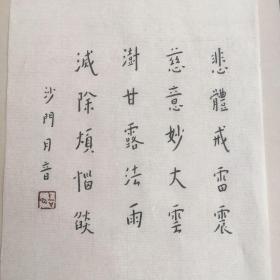 悲體戒雷震
慈意妙大雲
澍甘露法雨
滅除煩惱燄
沙門月音